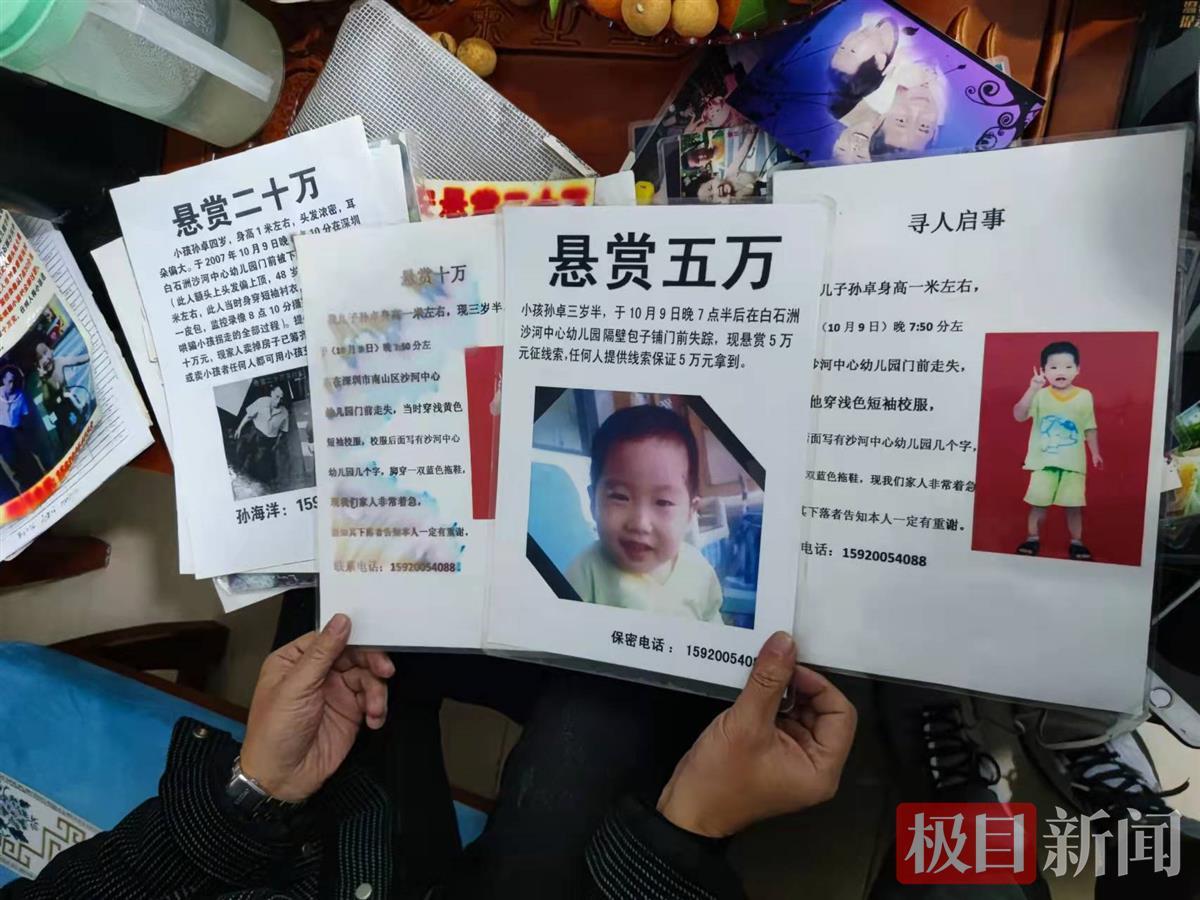 悬赏二十万
小孩孙卓四岁，身高1米左右，头发浓密，耳
朵偏大。于2007年10月9日晚
10分在深圳
白石洲沙河中心幼儿园门前被
(此人额头上头发偏上顶，48岁
米左右，此人当时身穿短袖衬衣，
一皮包，监控录像8点10分
哄骗小孩拐走的全部过程)。提
十万元，现家人卖掉房子已筹
或卖小孩者任何人都可用小孩
孙海洋：159
悬赏十万
我儿子孙卓身高一米左右，现三岁半
（10月9日）晚7:50分左
在深圳市南山区沙河中心
幼儿园门前走失，当时穿浅黄色
短袖校服，校服后面写有沙河中心
幼儿园几个字，脚穿一双蓝色拖鞋，
现我们家人非常着急，
如其下落者告知本人一定有重谢。
联系电话：15920054088
悬赏五万
小孩孙卓三岁半，于10月9日晚7点半后在白石洲
沙河中心幼儿园隔壁包子铺门前失踪，现悬赏5万
元征线索，任何人提供线索保证5万元拿到。
保密电话： 1592005408
寻人启事
儿子孙卓身高一米左右，
（10月9日）晚7:50分左
沙河中心幼儿园门前走失，
他穿浅色短袖校服，
后面写有沙河中心幼儿园几个字，
双蓝色拖鞋，现我们家人非常着急
其下落者告知本人一定有重谢。
电话：15920054088
极目新闻